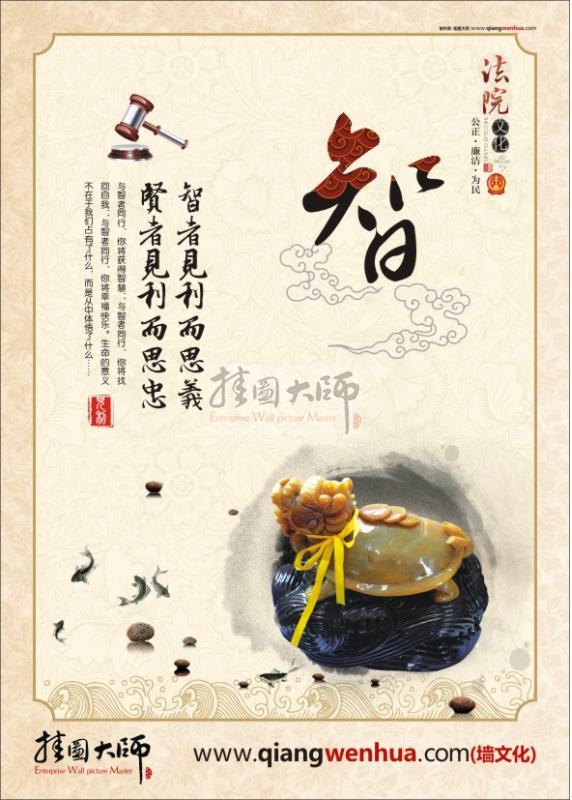 智作图·挂图大师:www.qiangwenhua.com
法院
文化
公正·廉洁·为民
智
智者見利而思義
賢者見利而思忠
与智者同行，你将获得智慧；与智者同行，你将找
回自我；与智者同行，你将幸福快乐。生命的意义
不在于我们占有了什么，而是从中体悟了什么……
挂圖大師
Enterprise Wall picture Master
挂圖大師
Enterprise Wall picture Master
www.qiangwenhua.com(墙文化)